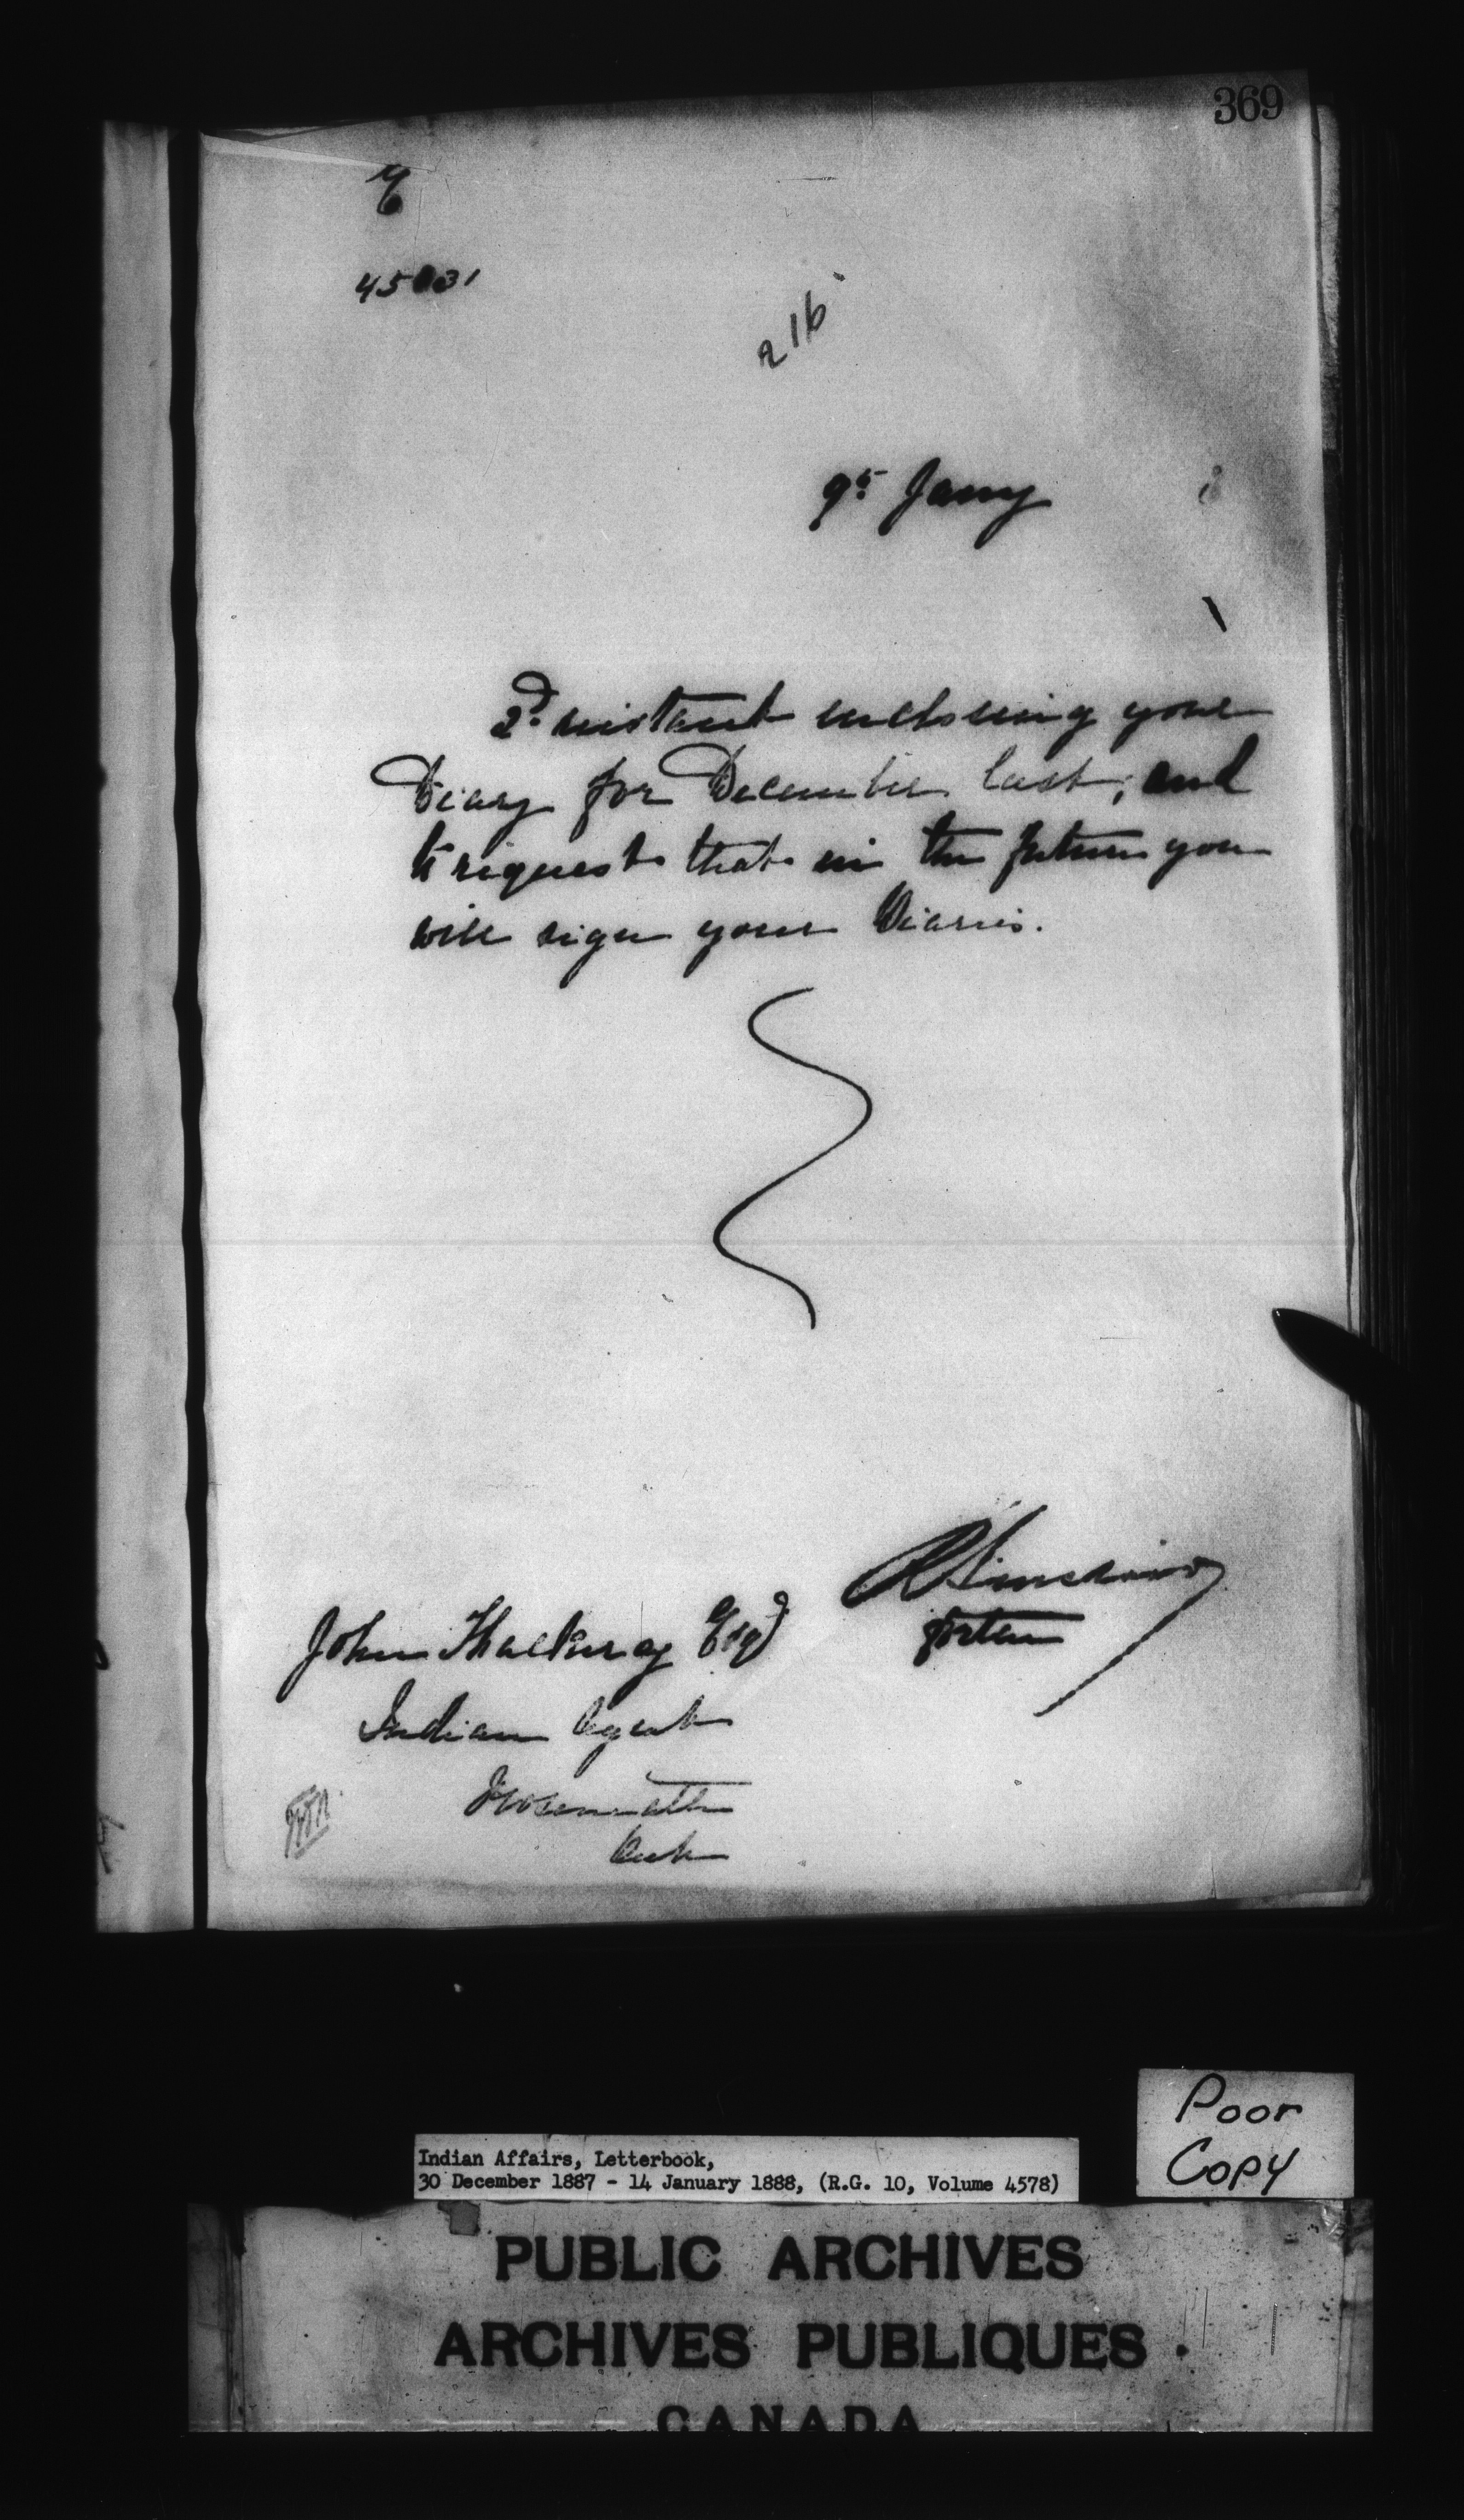 369
216
9th Jany 8
2d instant enclosing your
Diary for December last; and
to request that in the future you
will sign your Diaries.
John Thackeray Esqr
Indian Agent
Roseneath
Ont
Poor
Copy
Indian Affairs, Letterbook,
30 December 1887 - 14 January 1888, (R.G. 10, Volume 4578)
PUBLIC ARCHIVES
ARCHIVES PUBLIQUES
CANADA